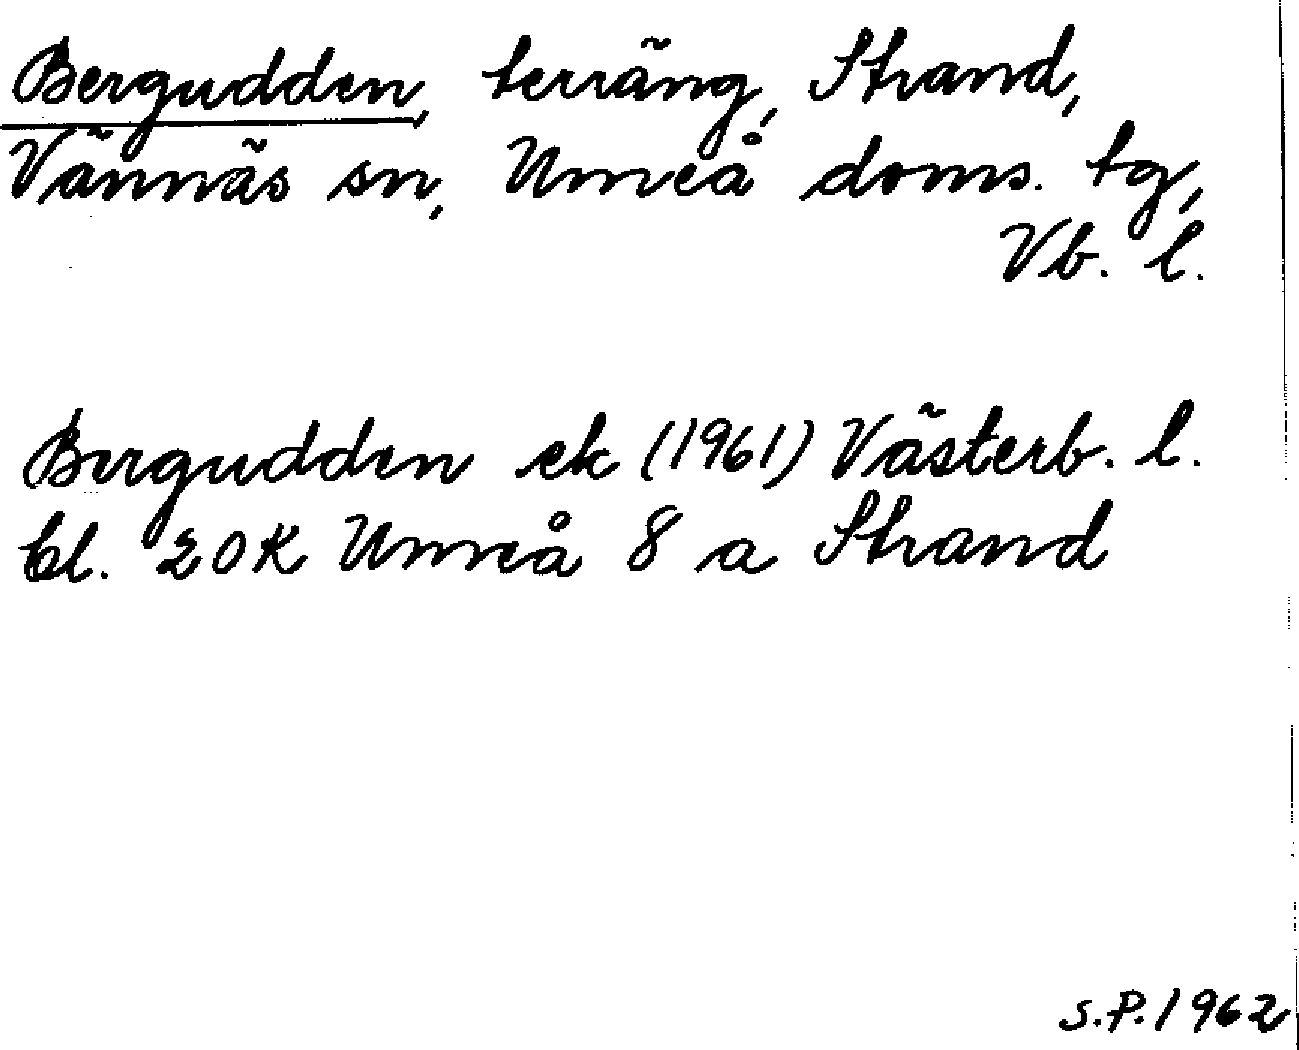 Bergudden, terräng, Strand,
Vännäs sn, Umeå doms. tg,
Vb. l.
Bergudden ek (1961) Västerb. l.
bl. 20K Umeå 8 a Strand
S.P. 1962